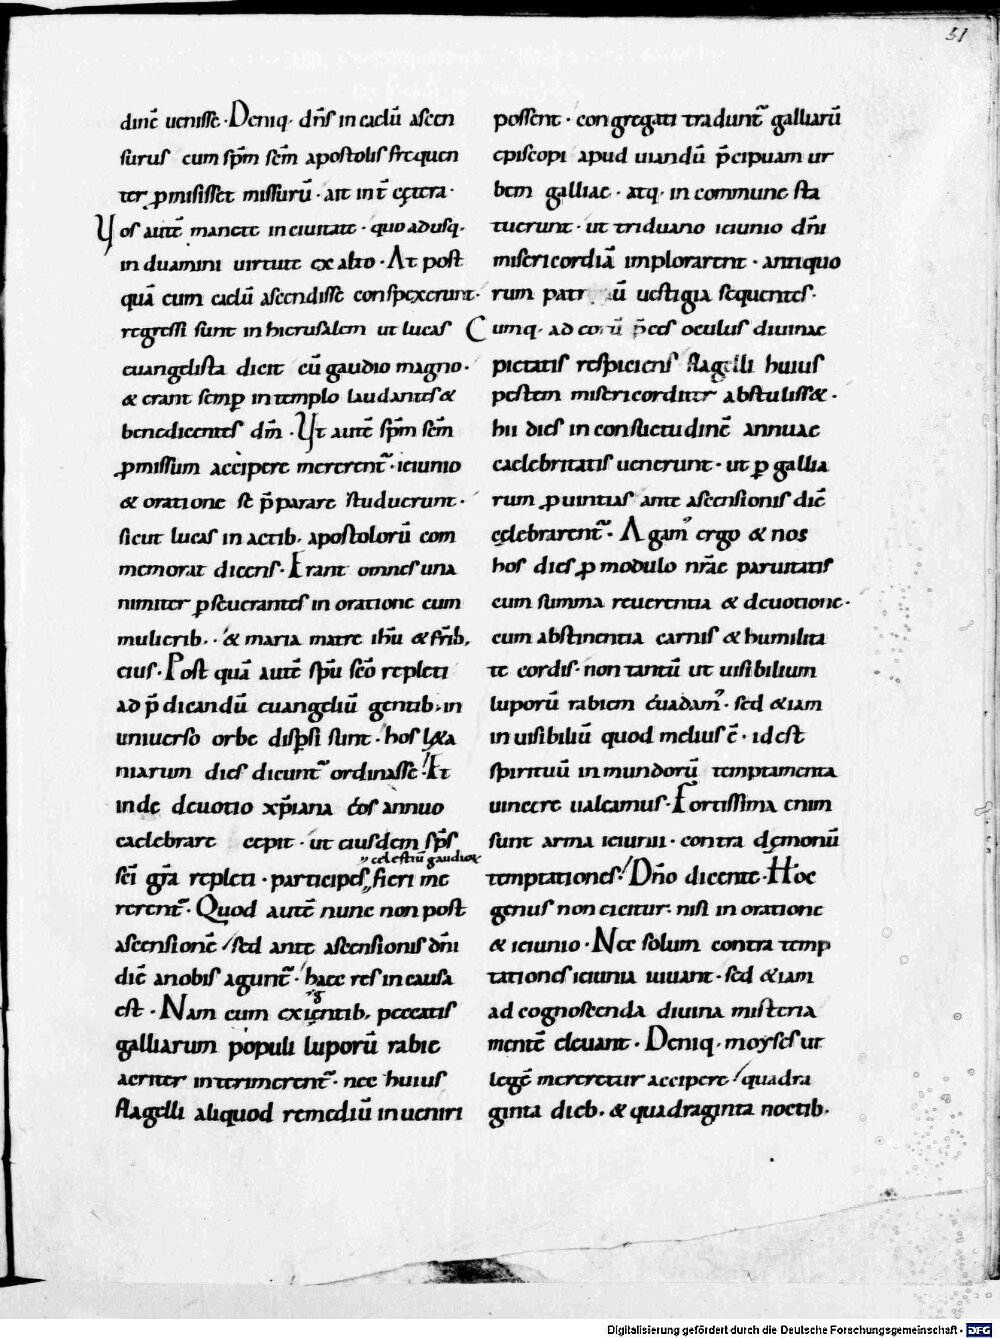 51
dinē uenisse · Deniq· dn̄s in caelū ascen
surus cum sp̄m sc̄m apostolis frequen
ter ꝓmisisset missurū · ait int̄ cętera ·
Vos autē manete in ciuitate · quo adusq·
induamini uirtute ex alto · At post
quā eum caelū ascendisse conspexerunt ·
regressi sunt in hierusalem ut lucas
euangelista dicit cū gaudio magno ·
& erant semꝑ in templo laudantes &
benedicentes dm̄ · Vt autē sp̄m sc̄m
ꝓmissum accipere mererent̄ · ieiunio
& oratione se p̄parare studuerunt ·
sicut lucas in actib· apostolorū com
memorat dicens · Erant omnes una
nimiter ꝑseuerantes in oratione cum
mulierib· · & maria matre ihū & frīb·
eius · Post quā autē sp̄u sc̄o repleti
ad p̄dicandū euangeliū gentib· in
uniuerso orbe disꝑsi sunt · hos l&a
niarum dies dicunt̄ ordinasse · Et
inde deuotio xp̄iana eos annuo
caelebrare cepit · ut eiusdem sp̄s
celestiū gaudioꝝ
sc̄i grā repleti · participes fieri me
rerent̄ · Quod autē nunc non post
ascensionē / sed ante ascensionis dn̄i
diē a nobis agunt̄ · haec res in causa
g
est · Nam cum exientib· peccatis
galliarum populi luporū rabie
acriter interimerent̄ · nec huius
flagelli aliquod remediū inueniri
possent · congregati tradunt̄ galliarū
episcopi apud uiandū p̄cipuam ur
bem galliae · atq· in commune sta
tuerunt · ut triduano ieiunio dn̄i
misericordiā implorarent · antiquo
rum ū uestigia sequentes ·
Cumq· ad p̄ces oculus diuinae
pietatis respiciens flagelli huius
pestem misericordit̄ abstuliss& ·
hii dies in consuetudinē annuae
caelebritatis uenerunt · ut ꝑ gallia
rum ꝓuintias ante ascensionis diē
cęlebrarent̄ · Agam᾽ ergo & nos
hos dies ꝓ modulo nr̄ae paruitatis
cum summa reuerentia & deuotione ·
cum abstinentia carnis & humilita
te cordis · non tantū ut uisibilium
luporū rabiem euadam᾽ · sed &iam
inuisibiliū quod melius ē · id est
spirituū inmundorū temptamenta
uincere ualeamus · Fortissima enim
sunt arma ieiunii · contra dęmonū
temptationes · Dn̄o dicente · Hoc
genus non eicitur · nisi in oratione
& ieiunio · Nec solum contra temp
tationes ieiunia iuuant · sed &iam
ad cognoscenda diuina misteria
mentē eleuant · Deniq· moyses ut
legē mereretur accipere / quadra
ginta dieb· & quadraginta noctib·
Digitalisierung gefördert durch die Deutsche Forschungsgemeinschaft - DFG